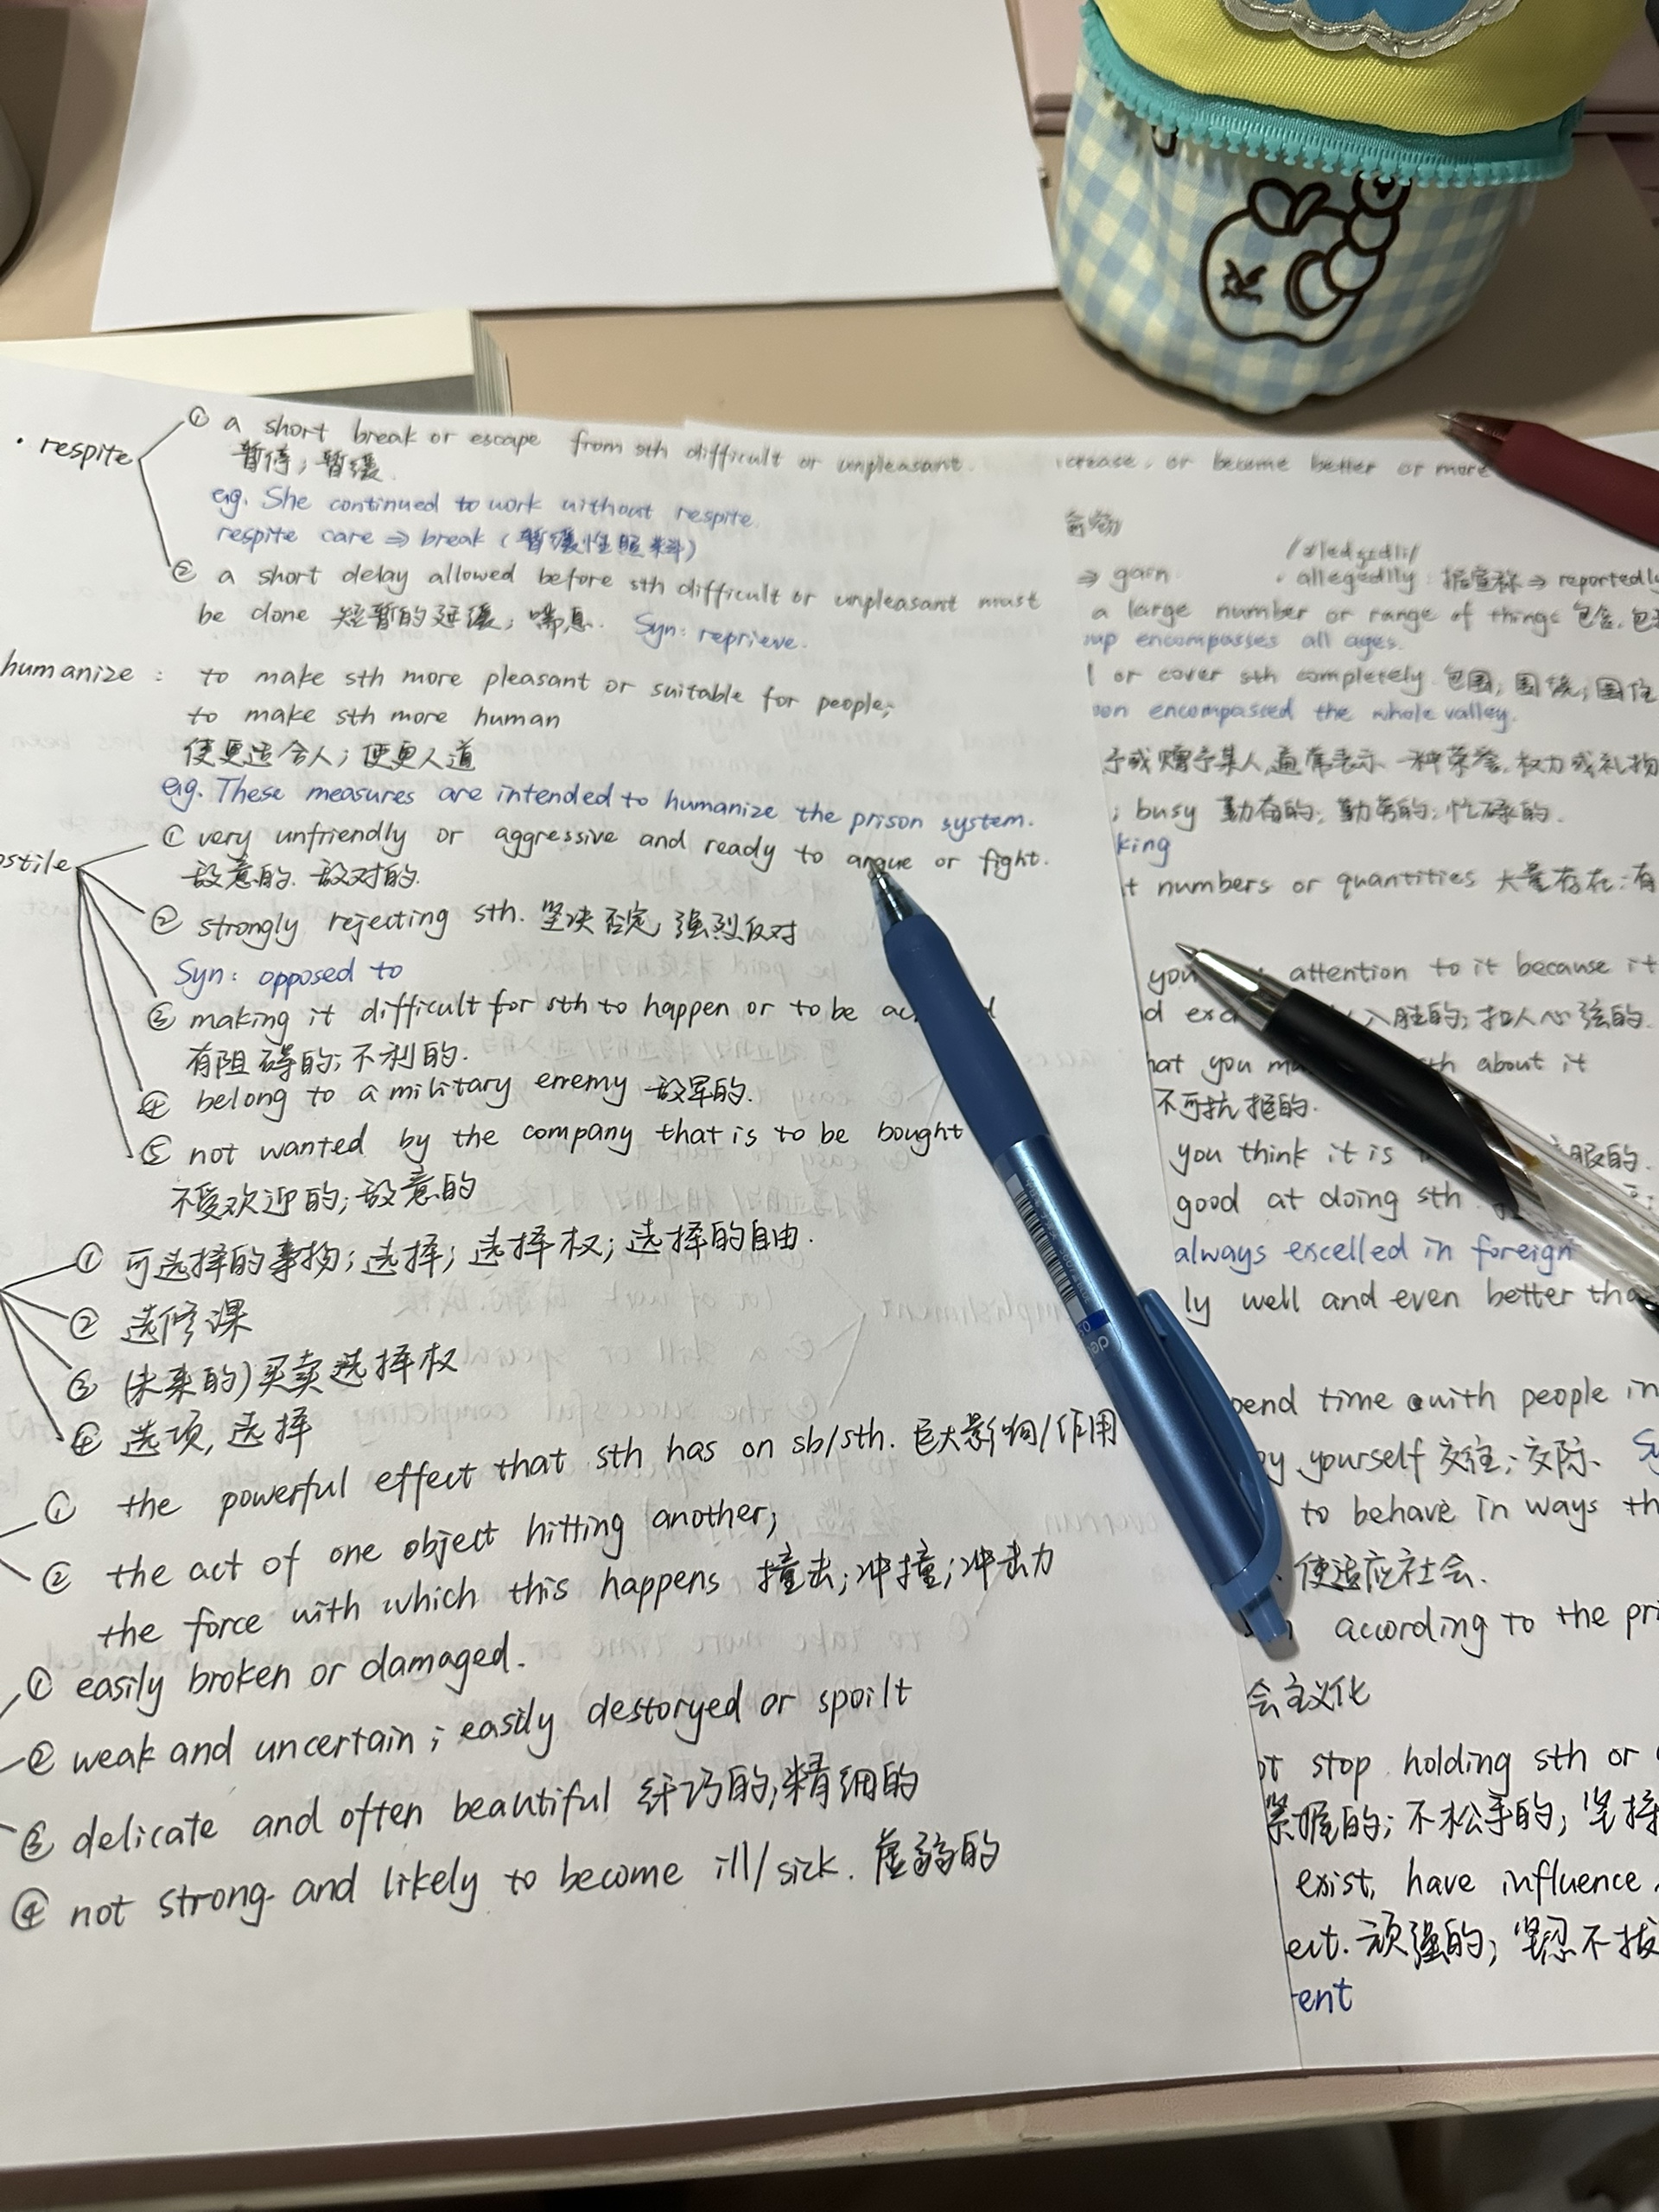 · respite
① a short break or escape from sth difficult or unpleasant.
暂停；暂缓
eg. She continued to work without respite.
respite care ⇒ break (暂缓性照料)
② a short delay allowed before sth difficult or unpleasant must
be done 短暂的延缓；喘息. Syn: reprieve.
humanize : to make sth more pleasant or suitable for people;
to make sth more human
使更适合人；使更人道
eg. These measures are intended to humanize the prison system.
ostile
① very unfriendly or aggressive and ready to argue or fight.
敌意的. 敌对的.
② strongly rejecting sth. 坚决否定，强烈反对
Syn: opposed to
③ making it difficult for sth to happen or to be
有阻碍的；不利的.
④ belong to a military enemy 敌军的.
⑤ not wanted by the company that is to be bought
不受欢迎的；敌意的
① 可选择的事物；选择；选择权；选择的自由.
② 选修课
③ (未来的)买卖选择权
④ 选项，选择
① the powerful effect that sth has on sb/sth. 巨大影响/作用
② the act of one object hitting another;
the force with which this happens 撞击；冲撞；冲击力
① easily broken or damaged.
② weak and uncertain ; easily destoryed or spoilt
③ delicate and often beautiful 纤巧的；精细的
④ not strong and likely to become ill/sick. 虚弱的
crease, or become better or more
⇒ garn
· allegedlly 据宣称 ⇒ reportedly
a large number or range of things 包含.
encompasses all ages.
or cover sth completely 包围；围绕；围住
encompassed the whole valley.
予或赠予某人，通常表示一种荣誉，权力或礼物
; busy 勤奋的；勤劳的；忙碌的.
king
t numbers or quantities 大量存在；有
you attention to it because it
入胜的；扣人心弦的.
hat you about it
不可抗拒的.
you think it is 服的.
good at doing sth
always excelled in foreign
ly well and even better tha
pend time with people in
by yourself 交往；交际. Sy
to behave in ways th
使适应社会.
according to the pri
会主义化
ot stop holding sth or
紧握的；不松手的；坚持
exist, have influence
ect. 顽强的；坚忍不拔
ent